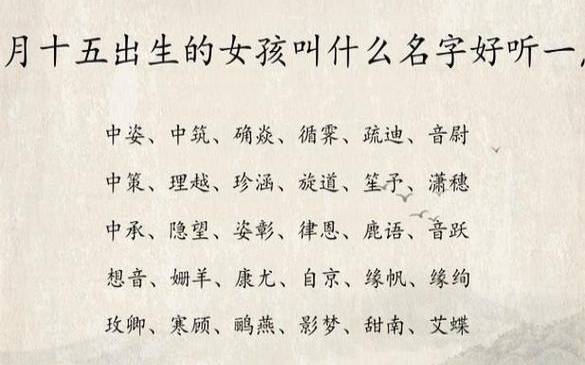 月十五出生的女孩叫什么名字好听一
中姿、中筑、确焱、循霁、疏迪、音尉
中策、理越、珍涵、旋道、笙予、潇穗
中承、隐望、姿彰、律恩、鹿语、音跃
想音、姗羊、康尤、自京、缘帆、缘绚
玫卿、寒顾、鹂燕、影梦、甜南、艾蝶